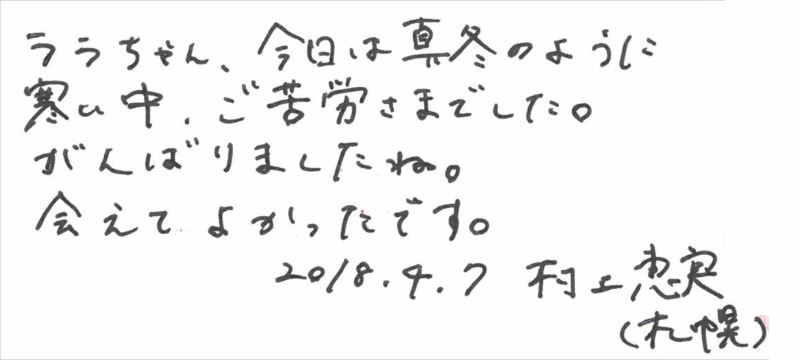 ララちゃん、今日は真冬のように
寒い中、ご苦労さまでした。
がんばりましたね。
会えてよかったです。
2018.4.7 村上恵実
(札幌)